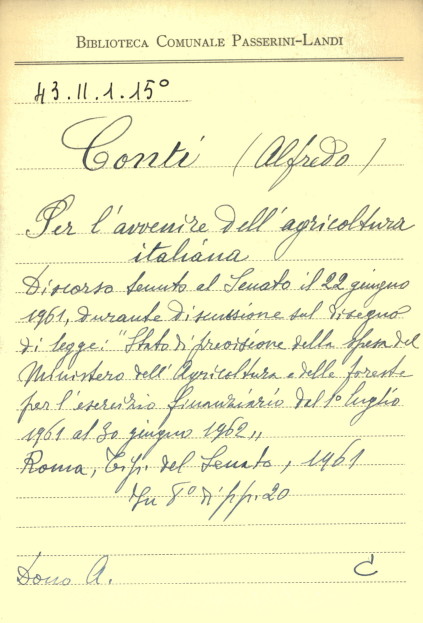 BIBLIOTECA COMUNALE PASSERINI-LANDI
43.II.1.15°
Conti (Alfredo)
Per l'avvenire dell'agricoltura
italiana
Discorso tenuto al Senato il 22 giugno
1961, durante discussione sul disegno
di legge: "Stato di previsione della spesa del
Ministero dell'Agricoltura e delle foreste
per l'esercizio finanziario dal 1° luglio
1961 al 30 giugno 1962"
Roma, Tip. del Senato, 1961
In 8° di pp. 20
Dono A. C